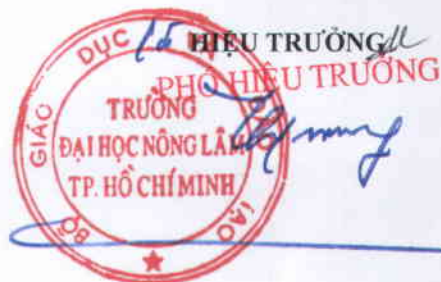 HIỆU TRƯỞNG
PHÓ HIỆU TRƯỞNG
BỘ GIÁO DỤC
TẠO
TRƯỜNG
ĐẠI HỌC NÔNG LÂM
TP. HỒ CHÍ MINH